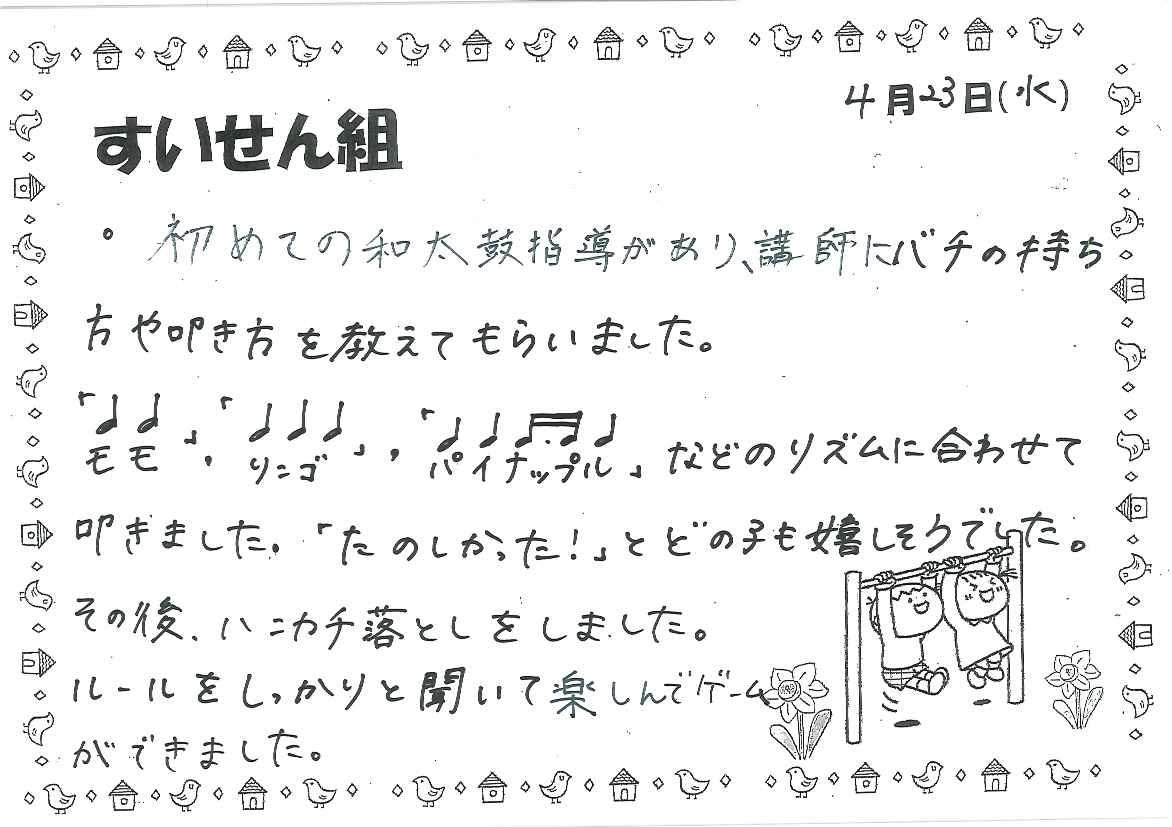 4月23日(水)
すいせん組
・初めての和太鼓指導があり、講師にバチの持ち
方や叩き方を教えてもらいました。
「♩♩」,「♩♩♩」,「♩♩♬♩」などのリズムに合わせて
モモ リンゴ パイナップル
叩きました。「たのしかった!」とどの子も嬉しそうでした。
その後、ハンカチ落としをしました。
ルールをしっかりと聞いて楽しんでゲーム
ができました。